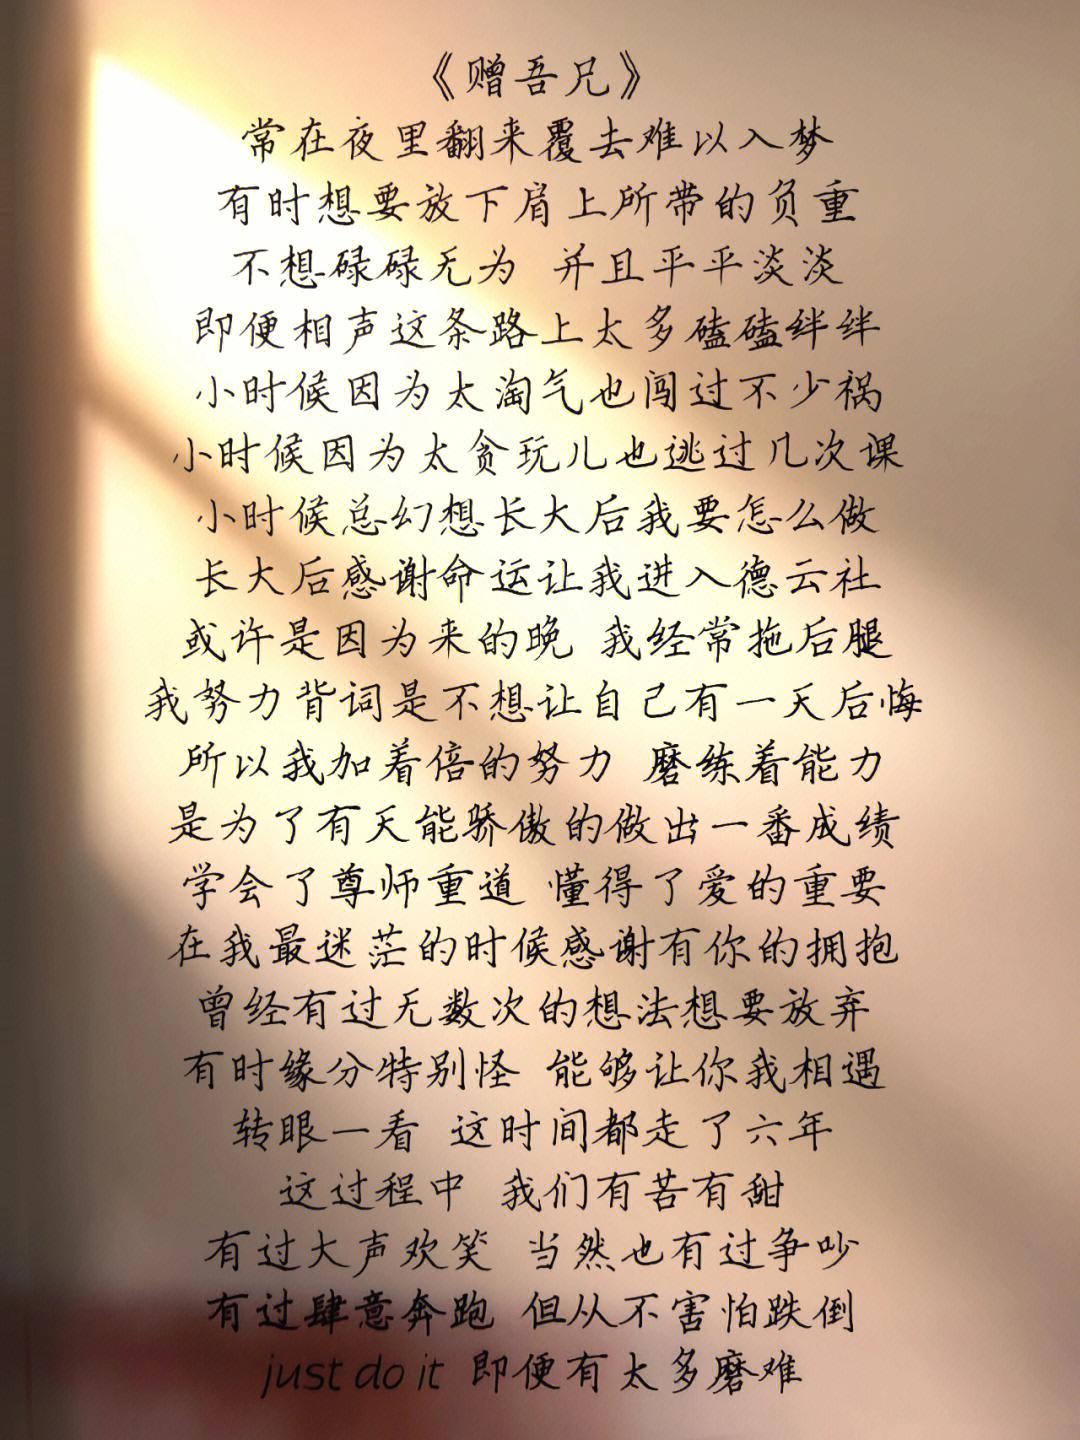 《赠吾兄》
常在夜里翻来覆去难以入梦
有时想要放下肩上所带的负重
不想碌碌无为 并且平平淡淡
即便相声这条路上太多磕磕绊绊
小时候因为太淘气也闯过不少祸
小时候因为太贪玩儿也逃过几次课
小时候总幻想长大后我要怎么做
长大后感谢命运让我进入德云社
或许是因为来的晚 我经常拖后腿
我努力背词是不想让自己有一天后悔
所以我加着倍的努力 磨练着能力
是为了有天能骄傲的做出一番成绩
学会了尊师重道 懂得了爱的重要
在我最迷茫的时候感谢有你的拥抱
曾经有过无数次的想法想要放弃
有时缘分特别怪 能够让你我相遇
转眼一看 这时间都走了六年
这过程中 我们有苦有甜
有过大声欢笑 当然也有过争吵
有过肆意奔跑 但从不害怕跌倒
just do it 即便有太多磨难